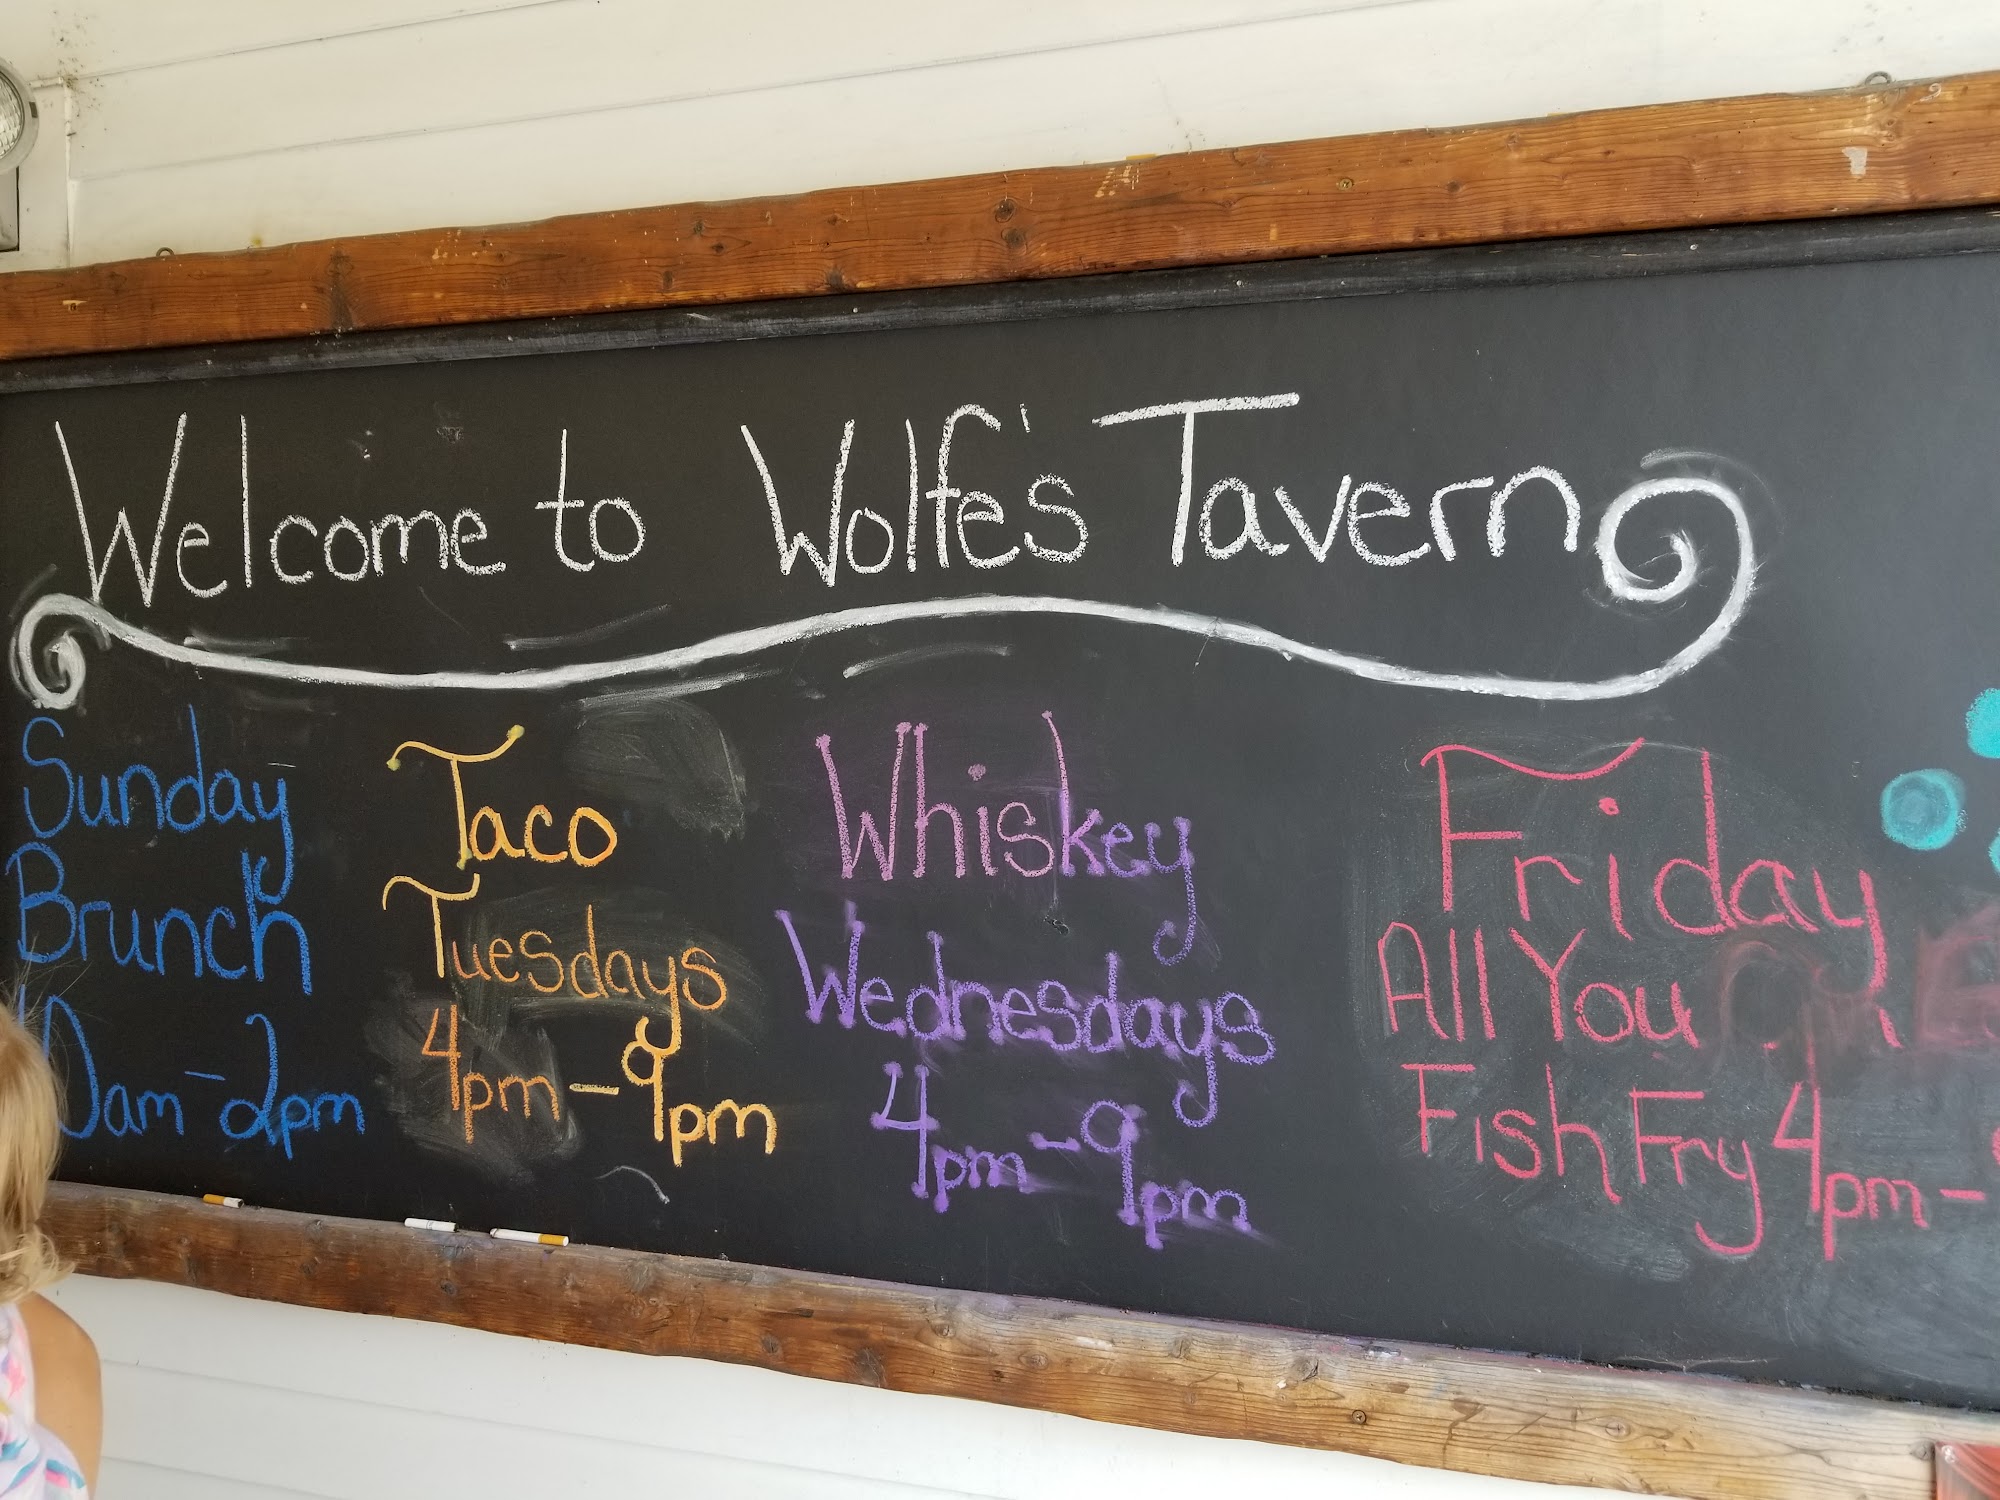 Welcome to Wolfe's Tavern
Sunday
Brunch
10am-2pm
Taco
Tuesdays
4pm-9pm
Whiskey
Wednesdays
4pm-9pm
Friday
All You
Fish Fry 4pm-